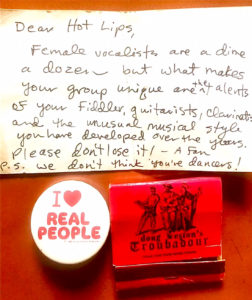 Dear Hot Lips,
Female vocalists are a dime
a dozen but what makes
your group unique are the talents
of your fiddler, guitarists, clarinetist
and the unusual musical style
you have developed over the years.
Please don't lose it! - A Fan
P.S. we don't think you're dancers!
I ♥
REAL
PEOPLE
doug weston's
Troubadour